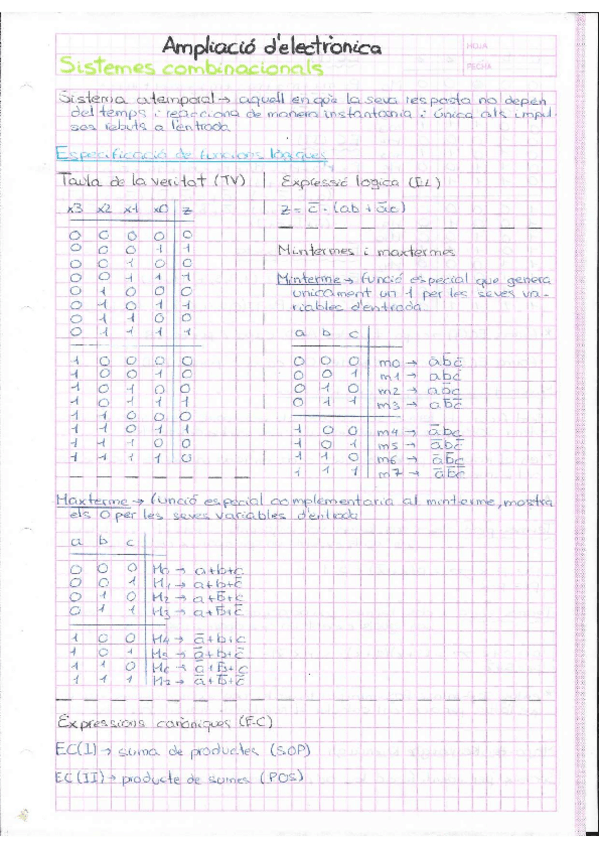 Ampliació d'electrònica
HOJA
Sistemes combinacionals
FECHA
Sistema atemporal → aquell en què la seva resposta no depèn
del temps i reacciona de manera instantània i única als impul-
sos rebuts a l'entrada.
Especificació de funcions lògiques
Taula de la veritat (TV) | Expressió lògica (EL)
x3 x2 x1 x0 z
z = c̅ · (ab + a̅c)
0 0 0 0 0
0 0 0 1 1
0 0 1 0 0
0 0 1 1 1
0 1 0 0 0
0 1 0 1 1
0 1 1 0 0
0 1 1 1 1
1 0 0 0 0
1 0 0 1 0
1 0 1 0 0
1 0 1 1 1
1 1 0 0 0
1 1 0 1 1
1 1 1 0 0
1 1 1 1 0
Mintermes i maxtermes
Minterme → funció especial que genera
unicament un 1 per les seves va-
riables d'entrada.
a b c
0 0 0 m0 →
0 0 1 m1 →
0 1 0 m2 →
0 1 1 m3 →
1 0 0 m4 →
1 0 1 m5 →
1 1 0 m6 →
1 1 1 m7 →
Maxterme → funció especial complementaria al minterme, mostra
els 0 per les seves variables d'entrada
a b c
0 0 0 M0 → a+b+c
0 0 1 M1 → a+b+c̅
0 1 0 M2 → a+b̅+c
0 1 1 M3 → a+b̅+c̅
1 0 0 M4 → a̅+b+c
1 0 1 M5 → a̅+b+c̅
1 1 0 M6 → a̅+b̅+c
1 1 1 M7 → a̅+b̅+c̅
Expressions canòniques (EC)
EC(I) → suma de productes (SOP)
EC(II) → producte de sumes (POS)